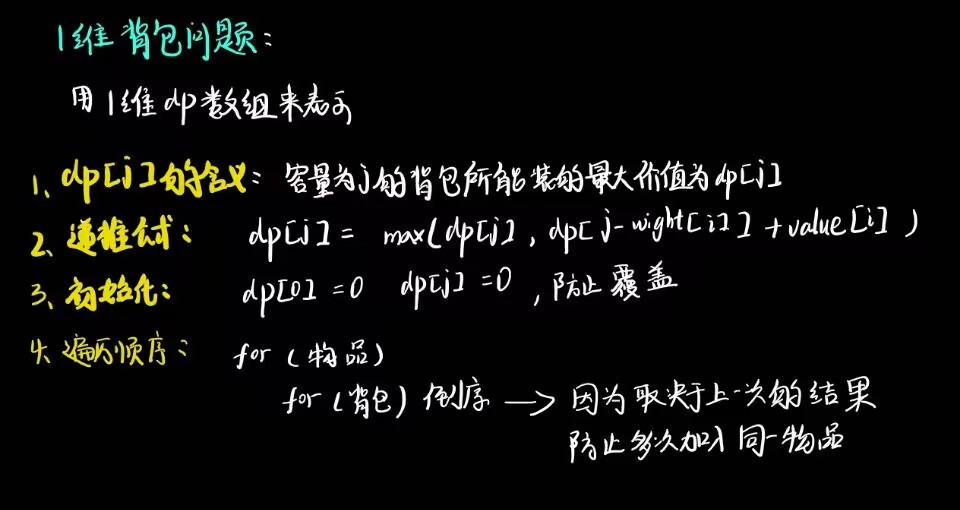 1维背包问题：
用1维dp数组来表示
1、dp[j]的含义：容量为j的背包所能装的最大价值为dp[j]
2、递推公式： dp[j] = max(dp[j], dp[j-wight[i]] + value[i])
3、初始化： dp[0] = 0 dp[j] = 0 , 防止覆盖
4、遍历顺序： for (物品)
for (背包) 倒序 → 因为取决于上一次的结果
防止多次加入同一物品